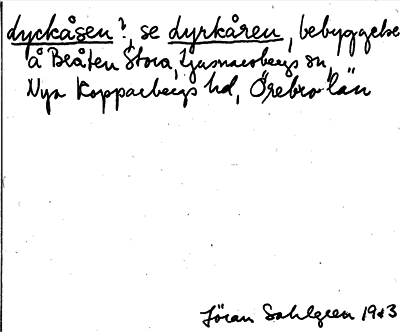 dyckåsen?, se dyrkåren, bebyggelse
å Blåten Stora, Ljusnarsbergs sn,
Nya Kopparbergs hd, Örebro län
Jöran Sahlgren 1943